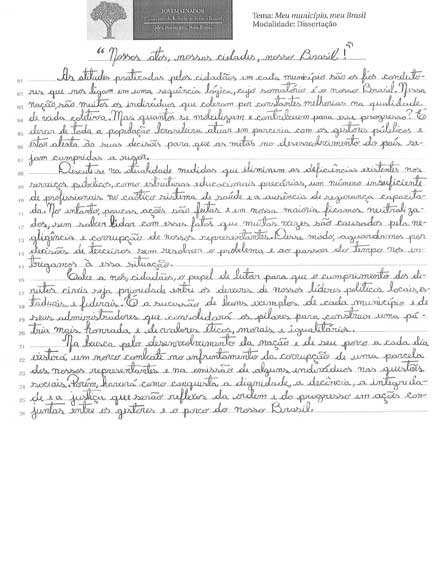 JOVEM SENADOR
Tema: Meu município, meu Brasil
Modalidade: Dissertação
"Nossos atos, nossas cidades, nosso Brasil!"
As atitudes praticadas pelos cidadãos em cada município são os fios conduto-
res que nos ligam em uma sequência lógica, cujo somatório é o nosso Brasil. Nessa
nação, são muitos os indivíduos que coloram por constantes melhorias na qualidade
de vida coletiva. Mas quantos se mobilizam e contribuem para esse progresso? É
dever de toda a população brasileira atuar em parceria com os gestores públicos e
estar alerta às suas decisões para que as metas no desenvolvimento do país se-
jam cumpridas a rigor.
Discute-se na atualidade medidas que eliminem as deficiências existentes nos
serviços públicos, como estruturas educacionais precárias, um número insuficiente
de profissionais no caótico sistema de saúde e a ausência de segurança capacita-
da. No entanto, poucas ações são feitas e em nossa maioria ficamos neutraliza-
dos, sem saber lidar com esses fatos que muitas vezes são causados pela ne-
gligência e corrupção de nossos representantes. Desse modo, aguardamos por
decisões de terceiros sem resolver o problema e ao passar do tempo nos en-
tregamos à essa situação.
Cabe a nós, cidadãos, o papel de lutar para que o cumprimento dos di-
reitos civis seja prioridade entre os deveres de nossos líderes políticos locais, es-
taduais e federais. É a sucessão de bons exemplos de cada município e de
seus administradores que consolidará os pilares para construir uma pá-
tria mais honrada e de valores éticos, morais e igualitários.
Na busca pelo desenvolvimento da nação e de seu povo a cada dia
existirá um novo combate no enfrentamento da corrupção de uma parcela
dos nossos representantes e na omissão de alguns indivíduos nas questões
sociais. Porém, haverá como conquista a dignidade, a decência, a integrida-
de e a justiça que serão reflexos da ordem e do progresso em ações con-
juntas entre os gestores e o povo do nosso Brasil.